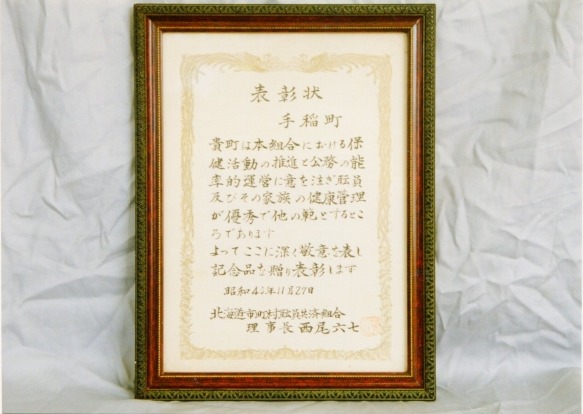 表彰状
手稲町
貴町は本組合における保
健活動の推進と公務の能
率的運営に意を注ぎ職員
及びその家族の健康管理
が優秀で他の範とするとこ
ろであります
よってここに深く敬意を表し
記念品を贈り表彰します
昭和4年11月27日
北海道市町村職員共済組合
理事長西尾六七